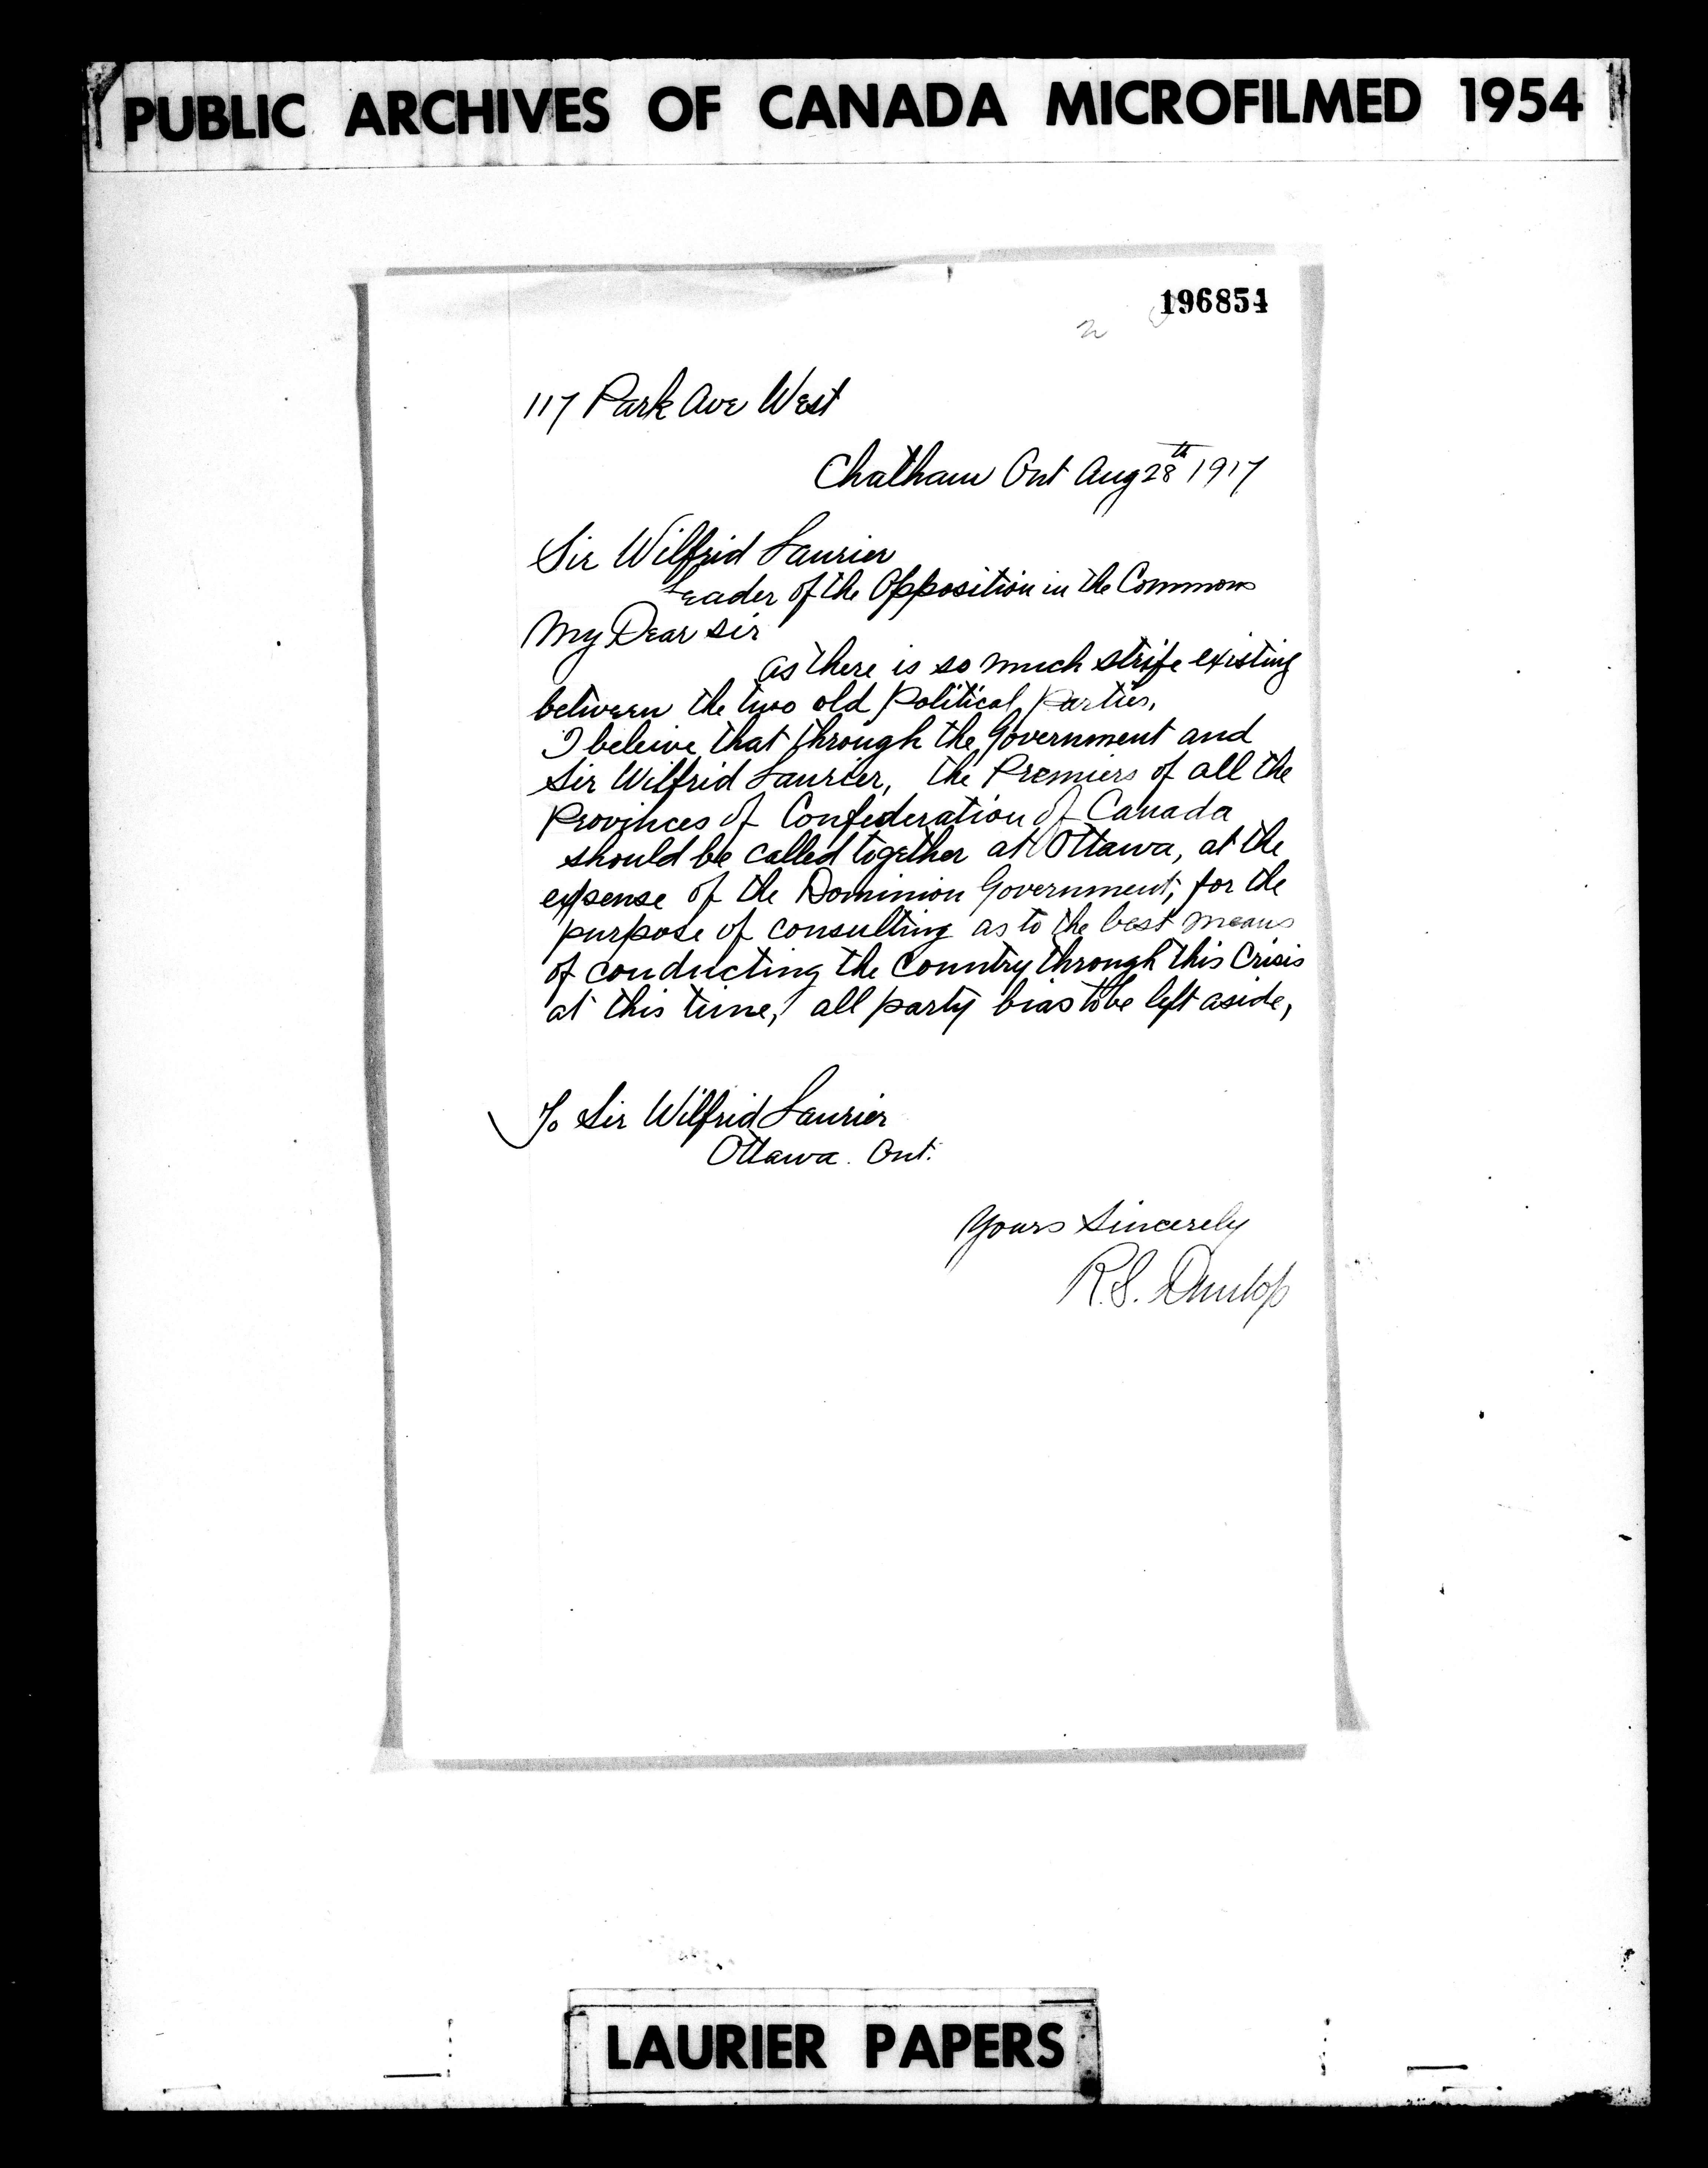 PUBLIC ARCHIVES OF CANADA MICROFILMED 1954
196854
117 Park Ave West
Chatham Ont Aug 28th 1917
Sir Wilfrid Laurier
Leader of the Opposition in the Commons
My Dear Sir
as there is so much strife existing
between the two old Political Parties,
I beleive that through the Government and
Sir Wilfrid Laurier, the Premiers of all the
Provinces of Confederation of Canada
should be called together at Ottawa, at the
expense of the Dominion Government, for the
purpose of consulting as to the best means
of conducting the Country through this Crisis
at this time, all party bias to be left aside,
To Sir Wilfrid Laurier
Ottawa. Ont.
Yours Sincerely
R.S. Dunlop
LAURIER PAPERS